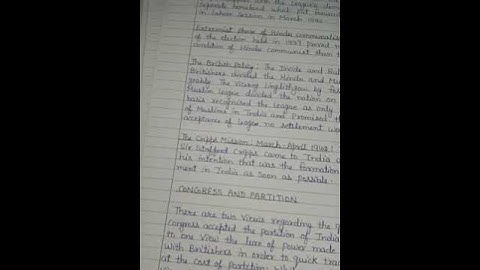 separate homeland which put forward
in Lahore Session in March 1940.
Extremist phase of Hindu communalism
of the election held in 1937 proved
condition of Hindu communist than
The British Policy: The Divide and
Britishers divided the Hindu and
The Viceroy Linlithgow by
Muslim league divided the nation on
basis recognised the league as only
of Muslims in India and Promised
acceptance of league no settlement
The Cripps Mission: March-April 1942:
Sir Stafford Cripps came to India
his intention that was the formation
ment in India as soon as possible.
CONGRESS AND PARTITION
There are two Views regarding the
Congress accepted the partition of India
to one View the lure of power made
with Britishers in order to quick
at the cost of partition;